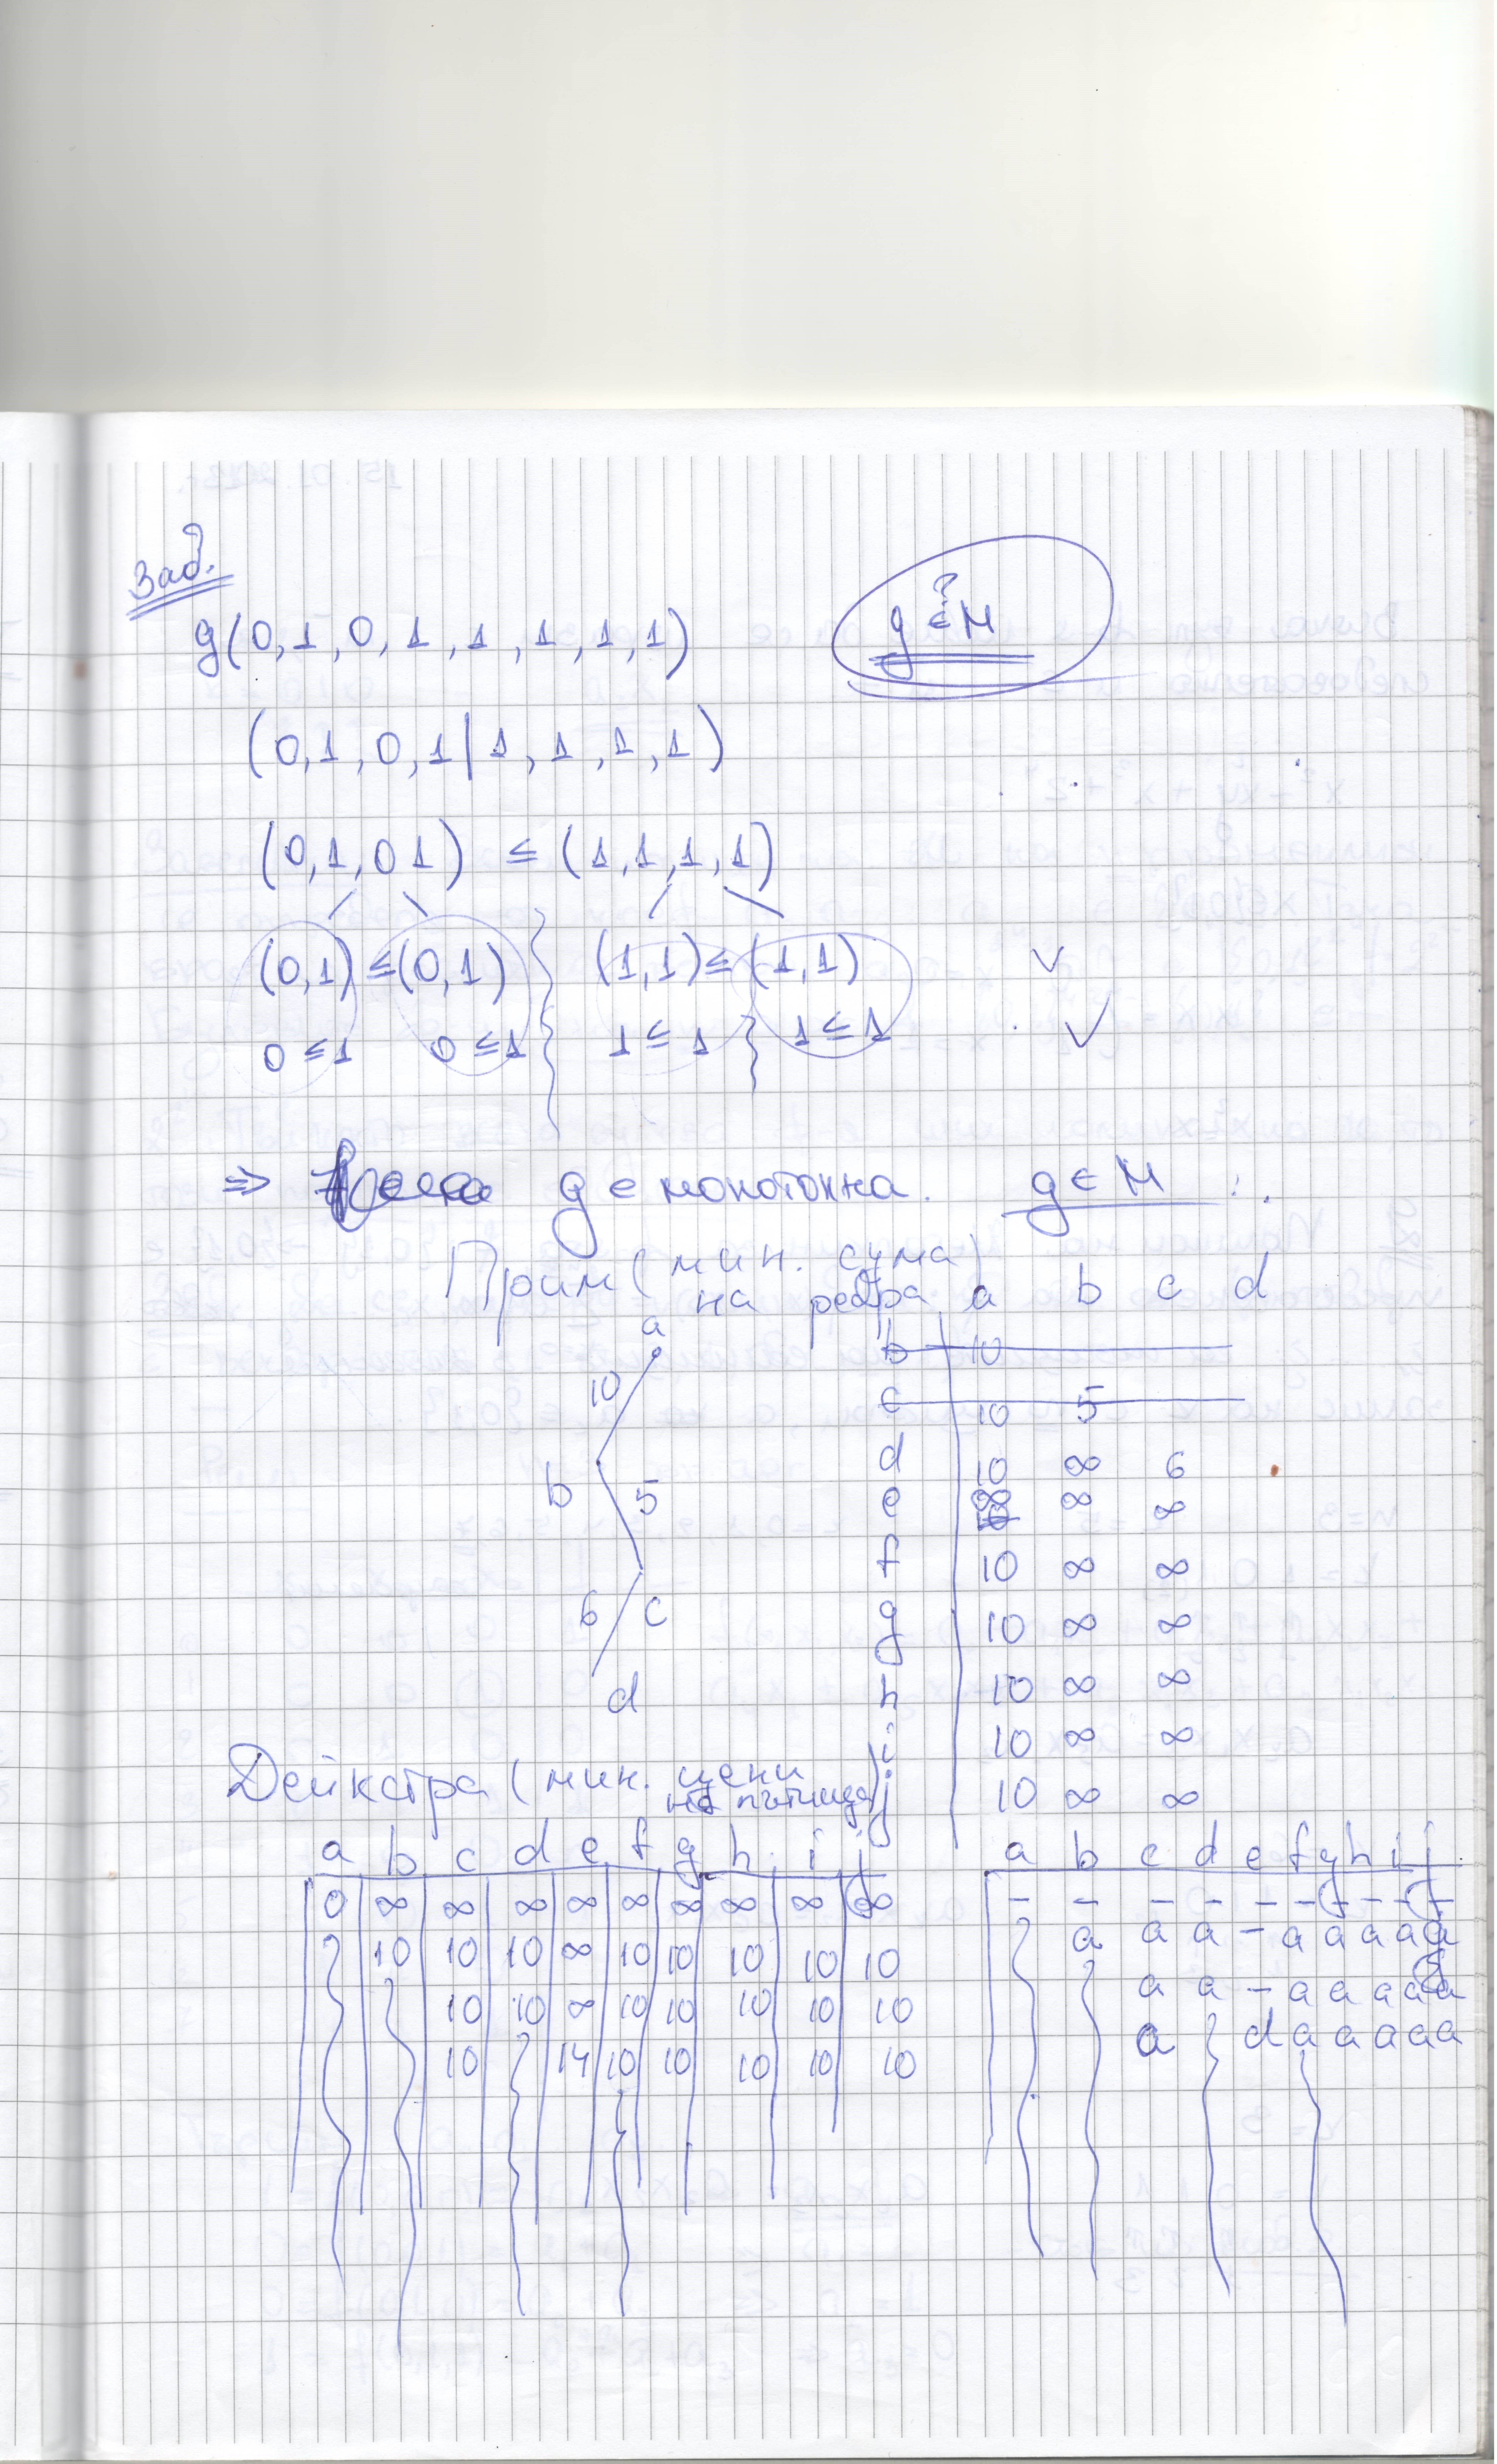 Зад.
g(0,1,0,1,1,1,1,1)
g ∈? M
(0,1,0,1|1,1,1,1)
(0,1,01) ≤ (1,1,1,1)
(0,1) ≤ (0,1) (1,1) ≤ (1,1) ✓
0 ≤ 1 0 ≤ 1 1 ≤ 1 1 ≤ 1 ✓
⇒ g е монотонна. g ∈ M
Прим (мин. сума
на ребра)
a
10
b 5
6 c
d
a b c d
b 10
c 10 5
d 10 ∞ 6
e ∞ ∞ ∞
f 10 ∞ ∞
g 10 ∞ ∞
h 10 ∞ ∞
i 10 ∞ ∞
j 10 ∞ ∞
Дейкстра (мин. цени
на пътища)
a b c d e f g h i j
0 ∞ ∞ ∞ ∞ ∞ ∞ ∞ ∞ ∞
10 10 10 ∞ 10 10 10 10 10
10 10 ∞ 10 10 10 10 10
10 14 10 10 10 10 10
a b c d e f g h i j
– – – – – – – – – –
a a a – a a a a a
a a – a a a a a
a d a a a a a